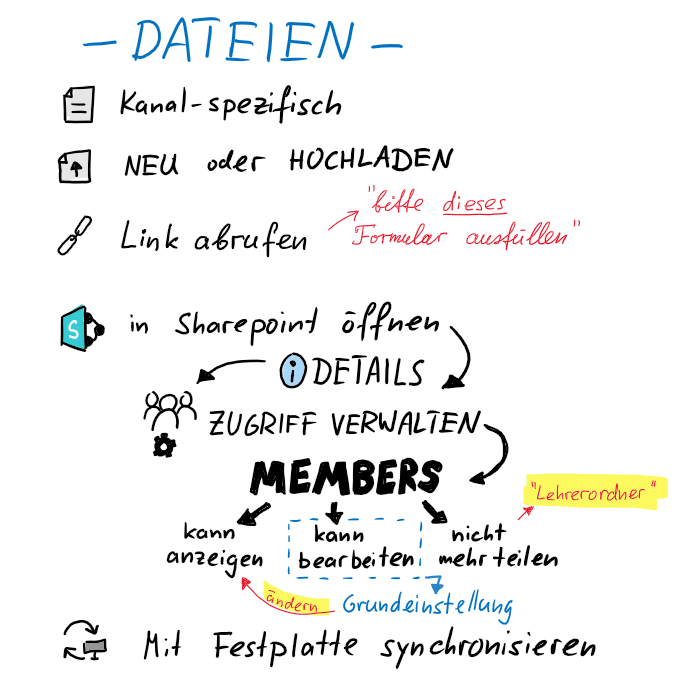 - DATEIEN -
Kanal-spezifisch
NEU oder HOCHLADEN
"bitte dieses
Formular ausfüllen"
Link abrufen
S
in Sharepoint öffnen
i DETAILS
ZUGRIFF VERWALTEN
MEMBERS
"Lehrerordner"
kann
anzeigen
kann
bearbeiten
nicht
mehr teilen
ändern
Grundeinstellung
Mit Festplatte synchronisieren